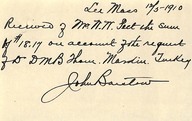 Lee Mass 12/3-1910
Received of Mr. A. H. Peet the sum
of $18.17 on account of the request
of Dr D M B Thom. Mardin. Turkey
John Barstow